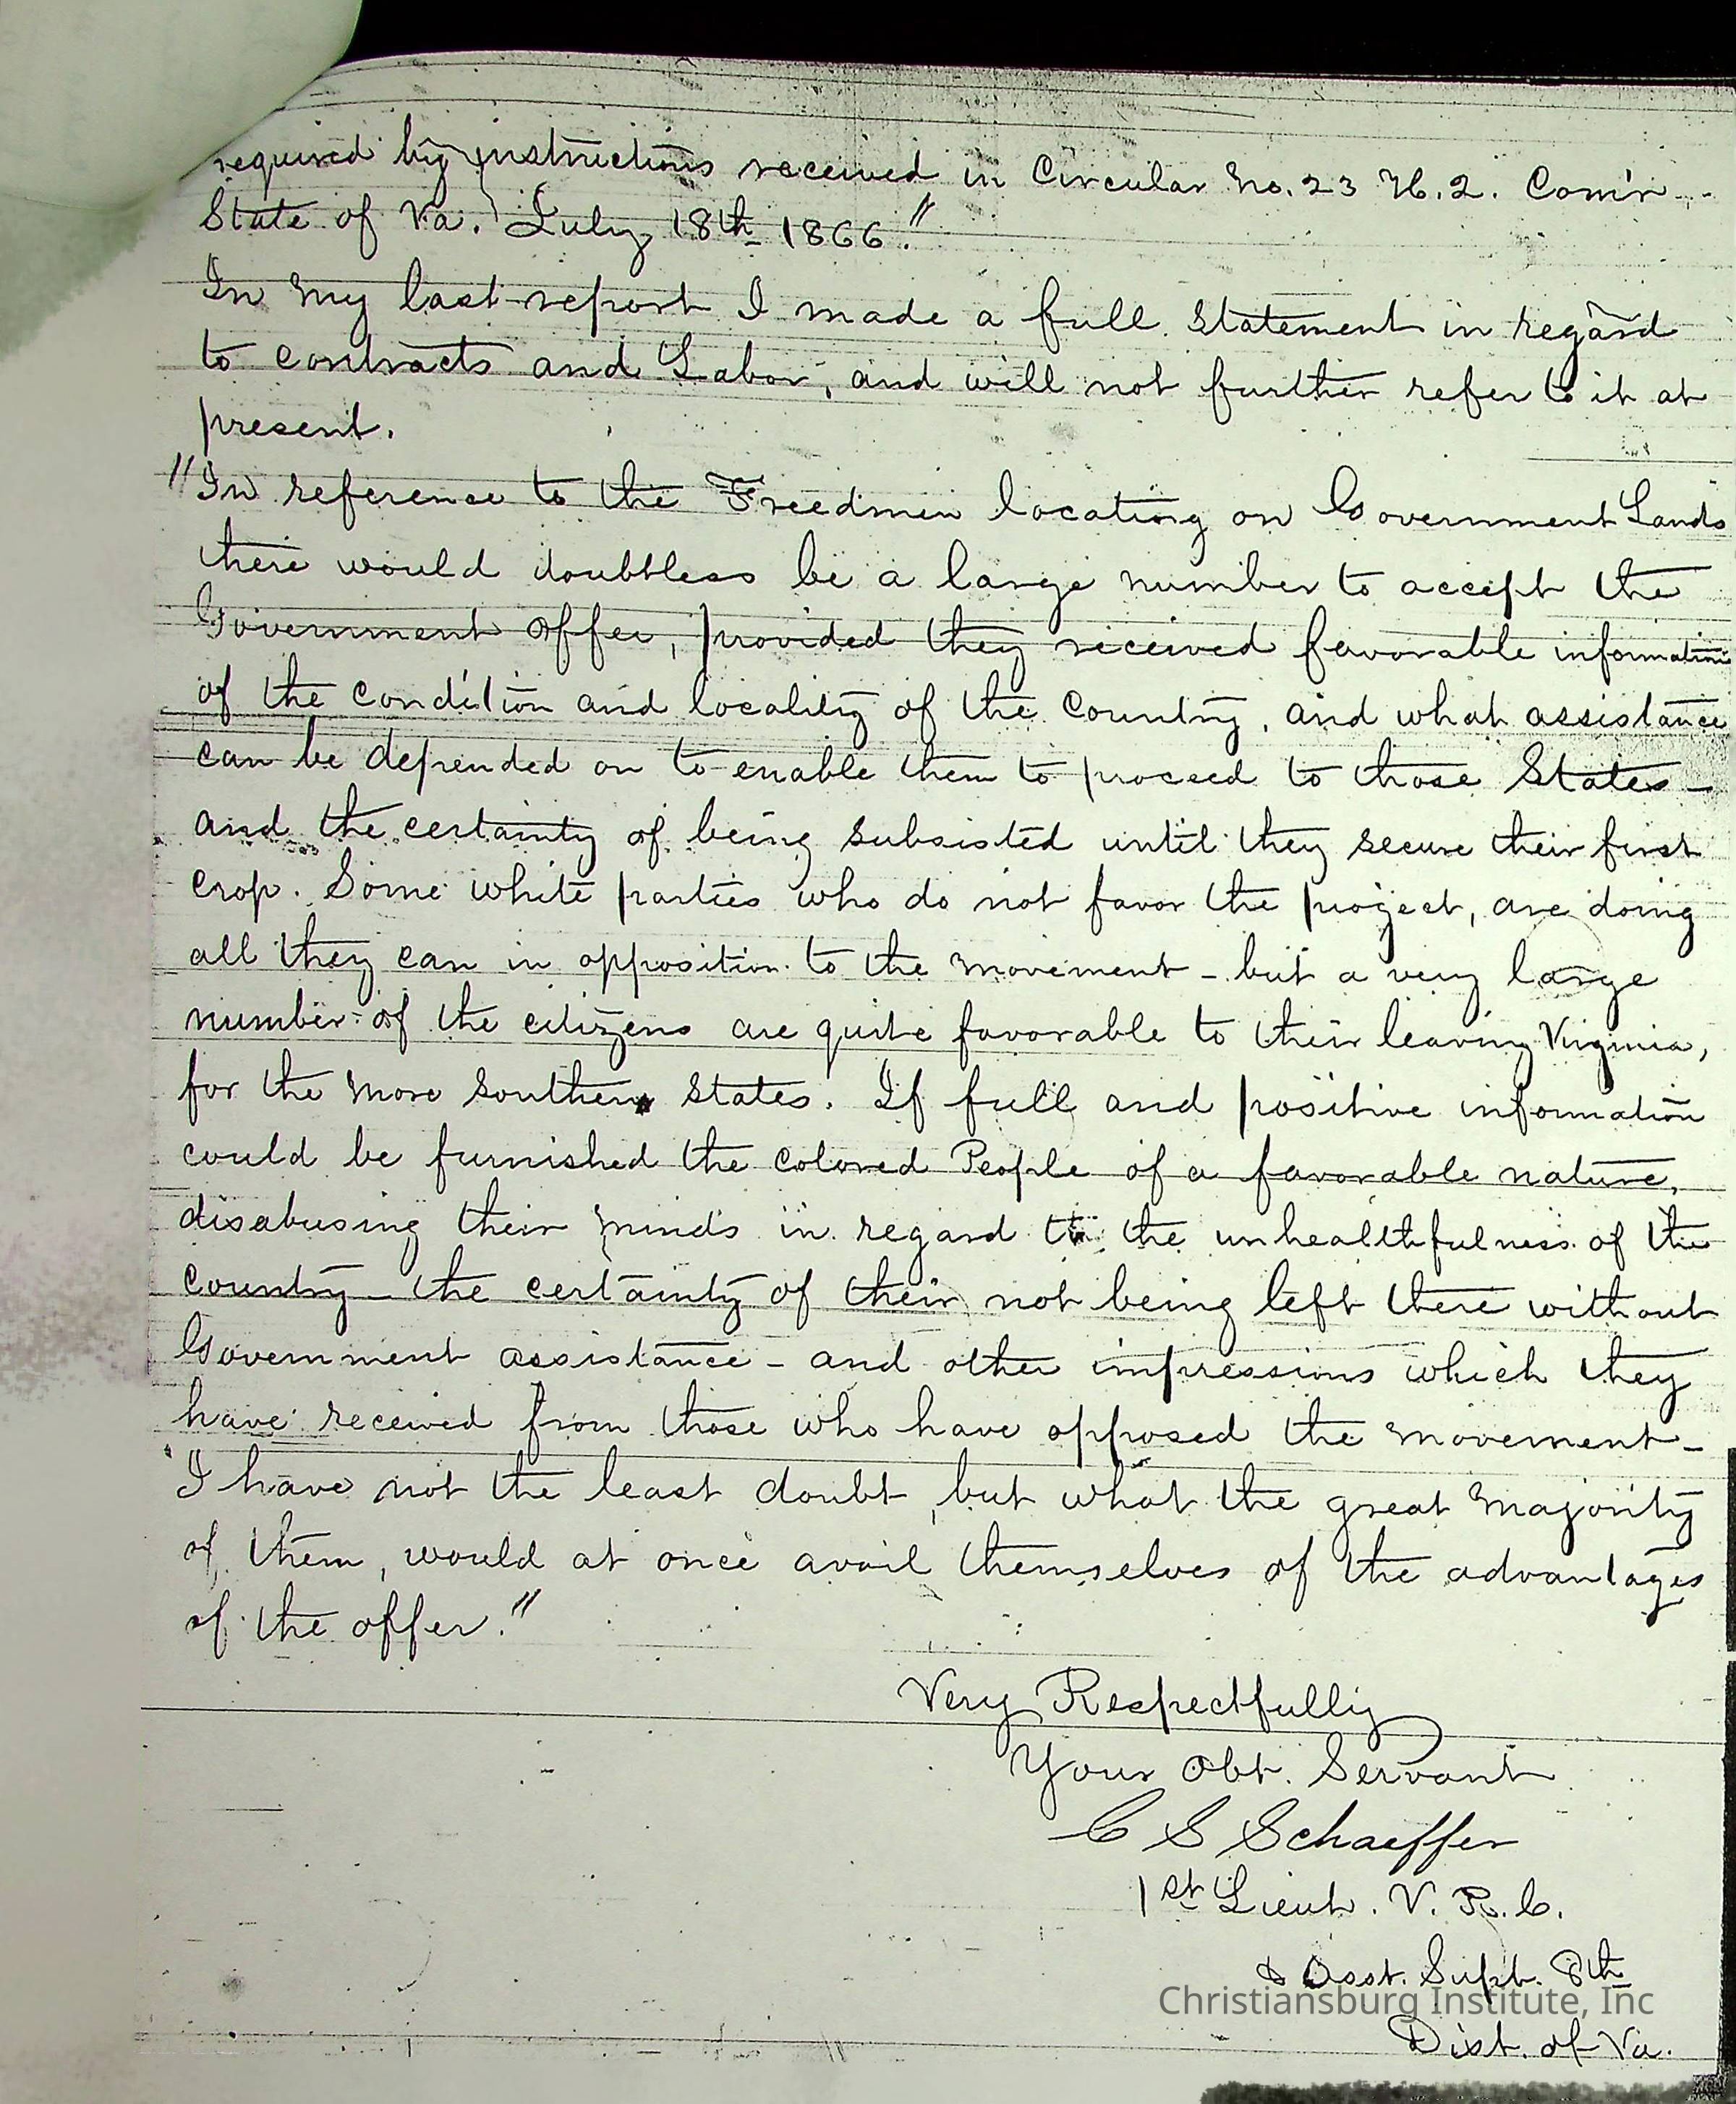 required by instructions received in Circular No. 23 H.2. Com'r
State of Va. July 18th 1866."
In my last report I made a full statement in regard
to contracts and Labor, and will not further refer to it at
present.
"In reference to the Freedmen locating on Government Lands
there would doubtless be a large number to accept the
Government offer, provided they received favorable information
of the condition and locality of the Country, and what assistance
can be depended on to enable them to proceed to those States -
and the certainty of being subsisted until they secure their first
crop. Some white parties who do not favor the project, are doing
all they can in opposition to the movement - but a very large
number of the citizens are quite favorable to their leaving Virginia,
for the more southern states. If full and positive information
could be furnished the colored People of a favorable nature,
disabusing their minds in regard to the unhealthfulness of the
country - the certainty of their not being left there without
Government assistance - and other impressions which they
have received from those who have opposed the movement -
"I have not the least doubt, but what the great majority
of them, would at once avail themselves of the advantages
of the offer."
Very Respectfully
Your Obt. Servant
C S Schaeffer
1st Lieut. V. R. C.
& Asst. Supt. 8th
Christiansburg Institute, Inc
Dist. of Va.